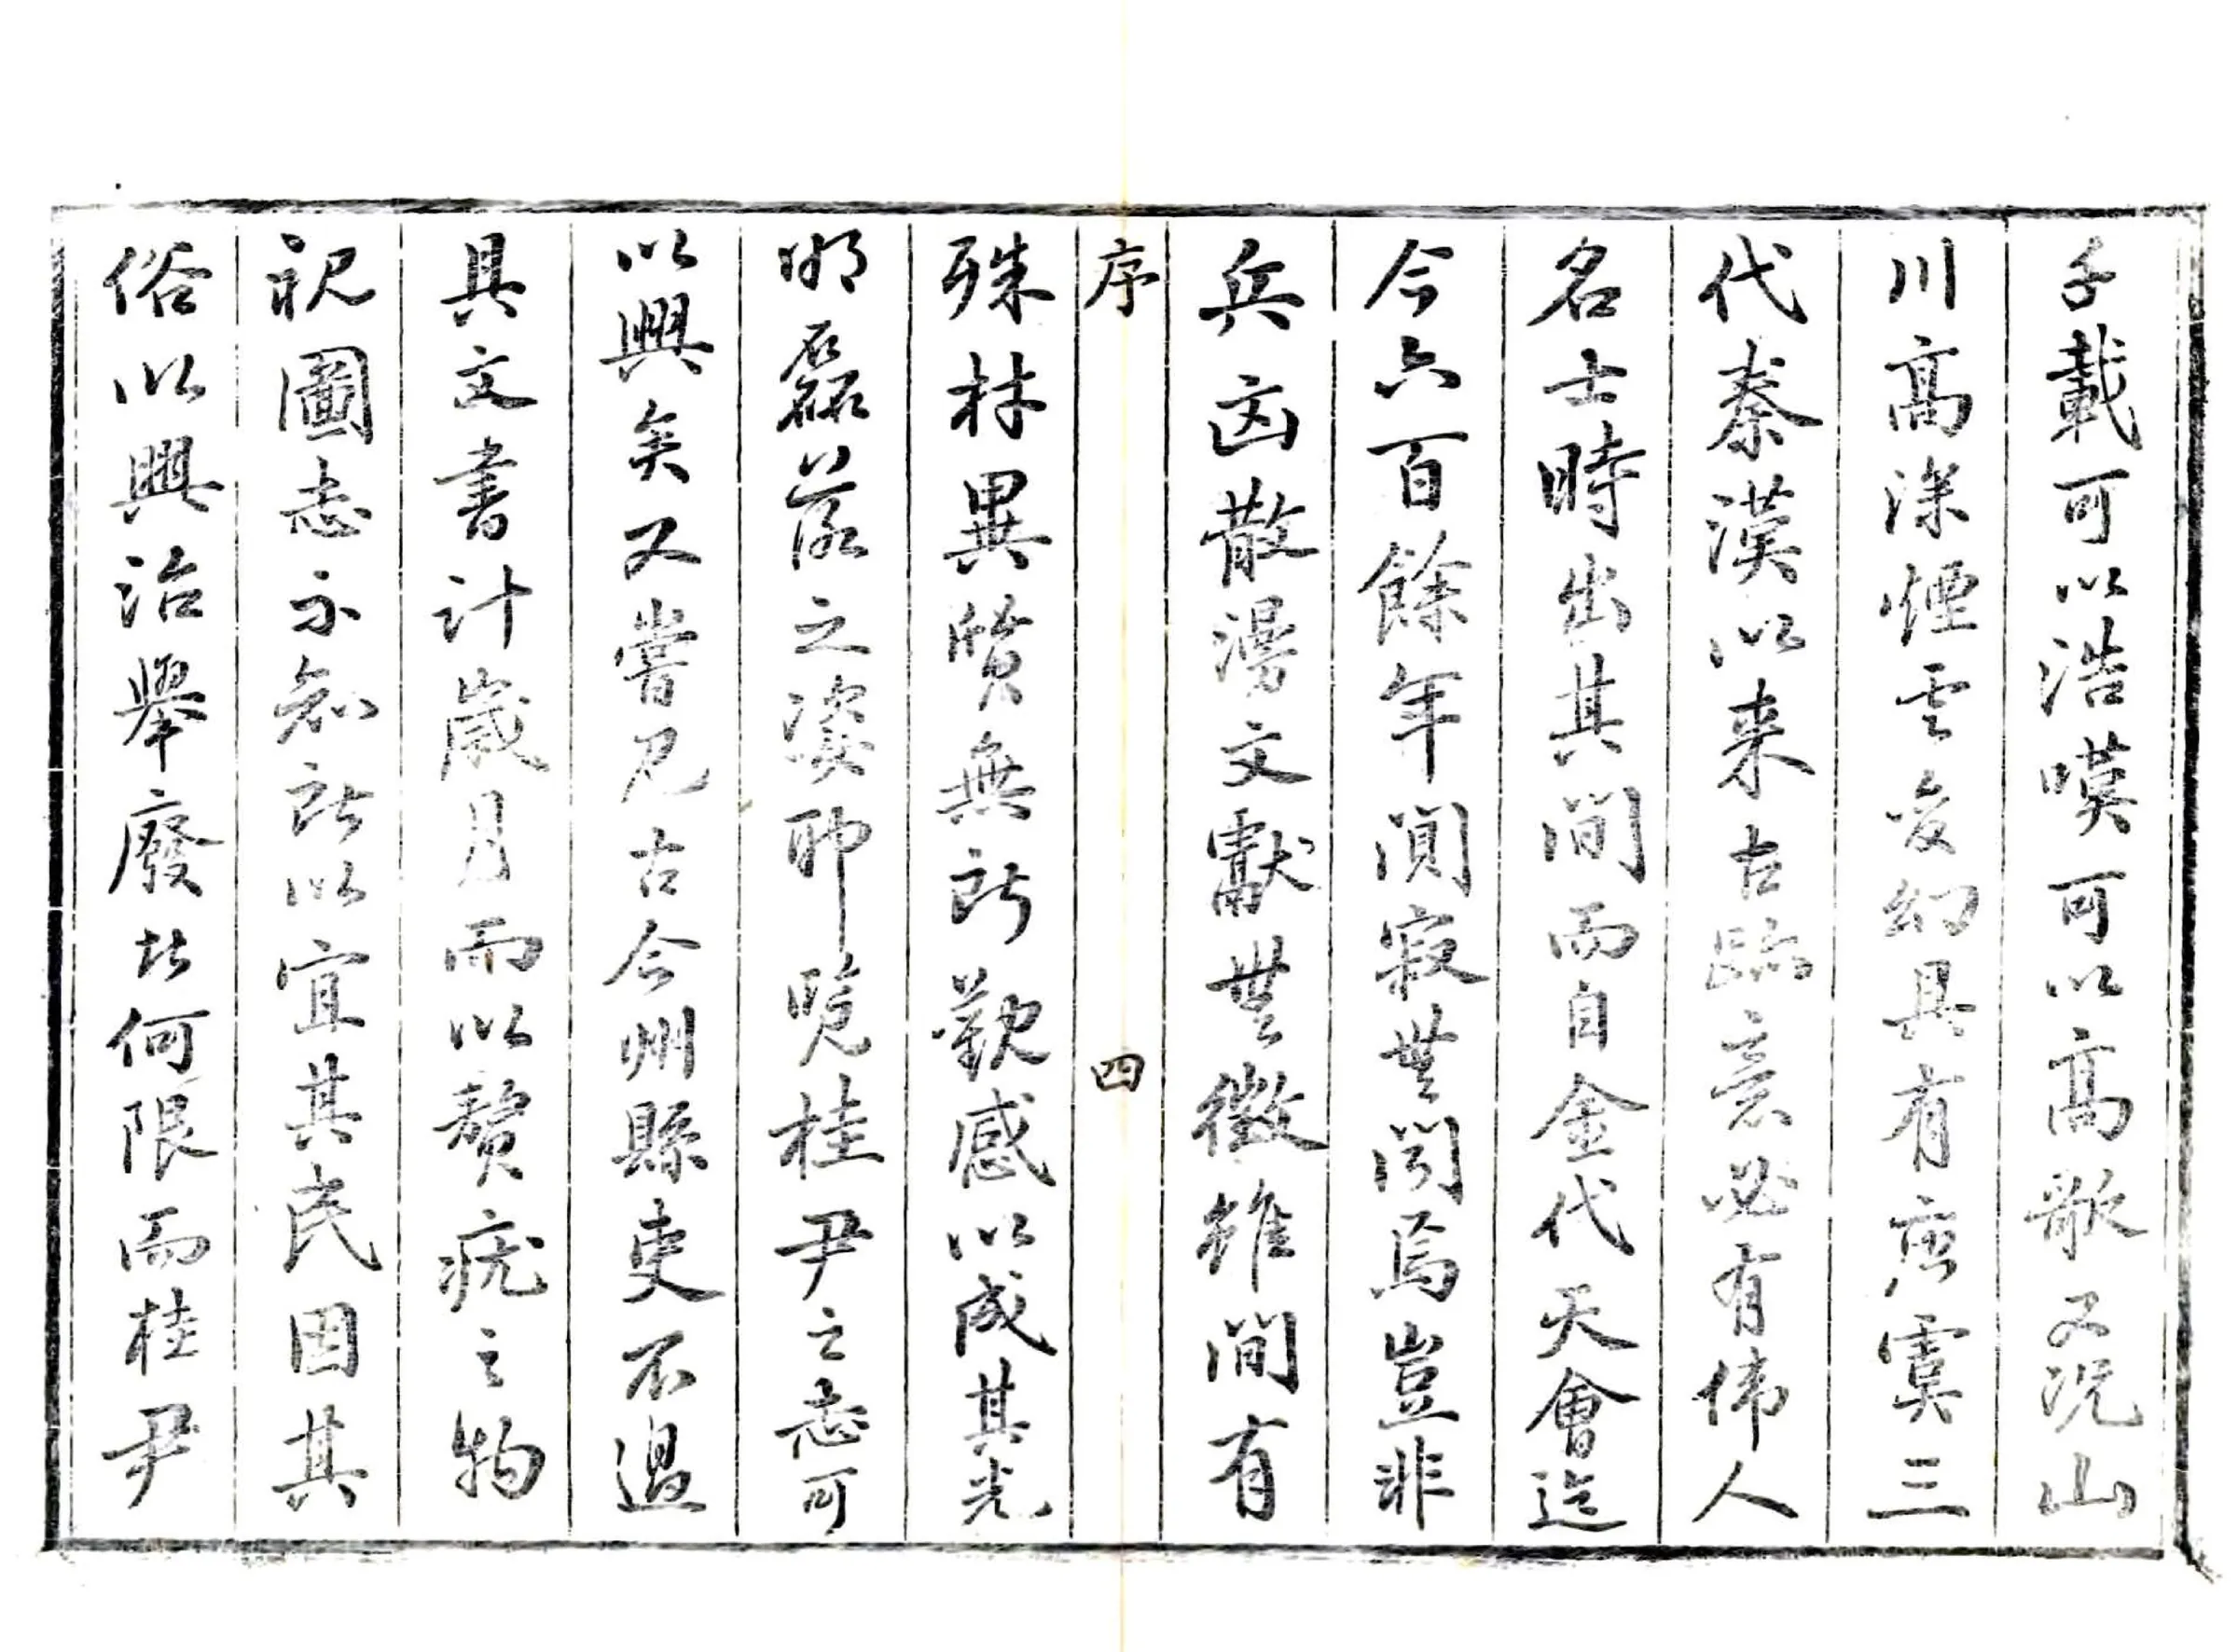 千載可以浩嘆可以高歌又況山
川高深煙雲変幻具有唐虞三
代秦漢以来古蹟意必有偉人
名士時出其間而自金代天會迄
今六百餘年闃寂無聞焉豈非
兵凶散漫文獻無徵雖間有
序 四
殊材異質無所歎感以成其光
明磊落之姿耶覽桂尹之志可
以興矣又嘗見古今州縣吏不過
具文書計歲月而以贅疣之物
視圖志不知所以宜其民因其
俗以興治舉廢者何限而桂尹